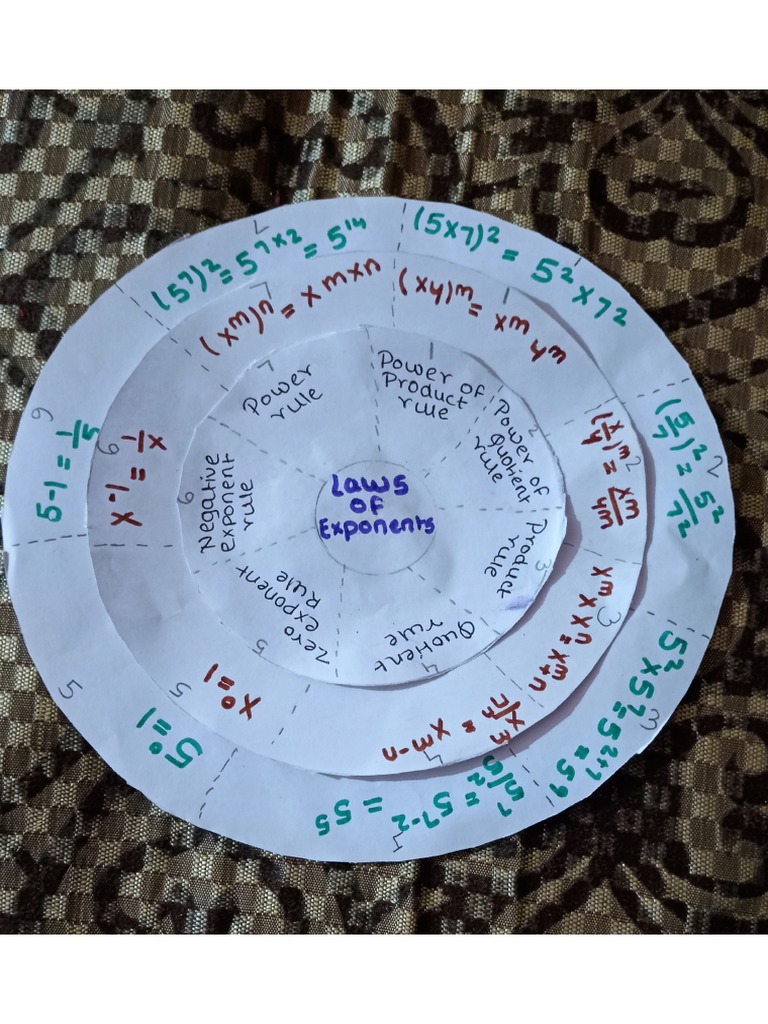 Laws
of
Exponents
1
Power of
Product
rule
2
Power of
Quotient
rule
3
Product
rule
4
Quotient
rule
5
Zero
exponent
Rule
6
Negative
exponent
rule
7
Power
rule
1
(xy)ᵐ = xᵐyᵐ
2
(x/y)ᵐ = xᵐ/yᵐ
3
xᵐ × xⁿ = xᵐ⁺ⁿ
4
xᵐ/xⁿ = xᵐ⁻ⁿ
5
x⁰ = 1
6
x-1 = 1/x
7
(xᵐ)ⁿ = xᵐˣⁿ
(5×7)² = 5² × 7²
2
(5/7)² = 5²/7²
3
5² × 5⁷ = 5²⁺⁷ = 5⁹
5⁷/5² = 5⁷⁻² = 55
5
5⁰ = 1
6
5-1 = 1/5
(5⁷)² = 5⁷ˣ² = 5¹⁴